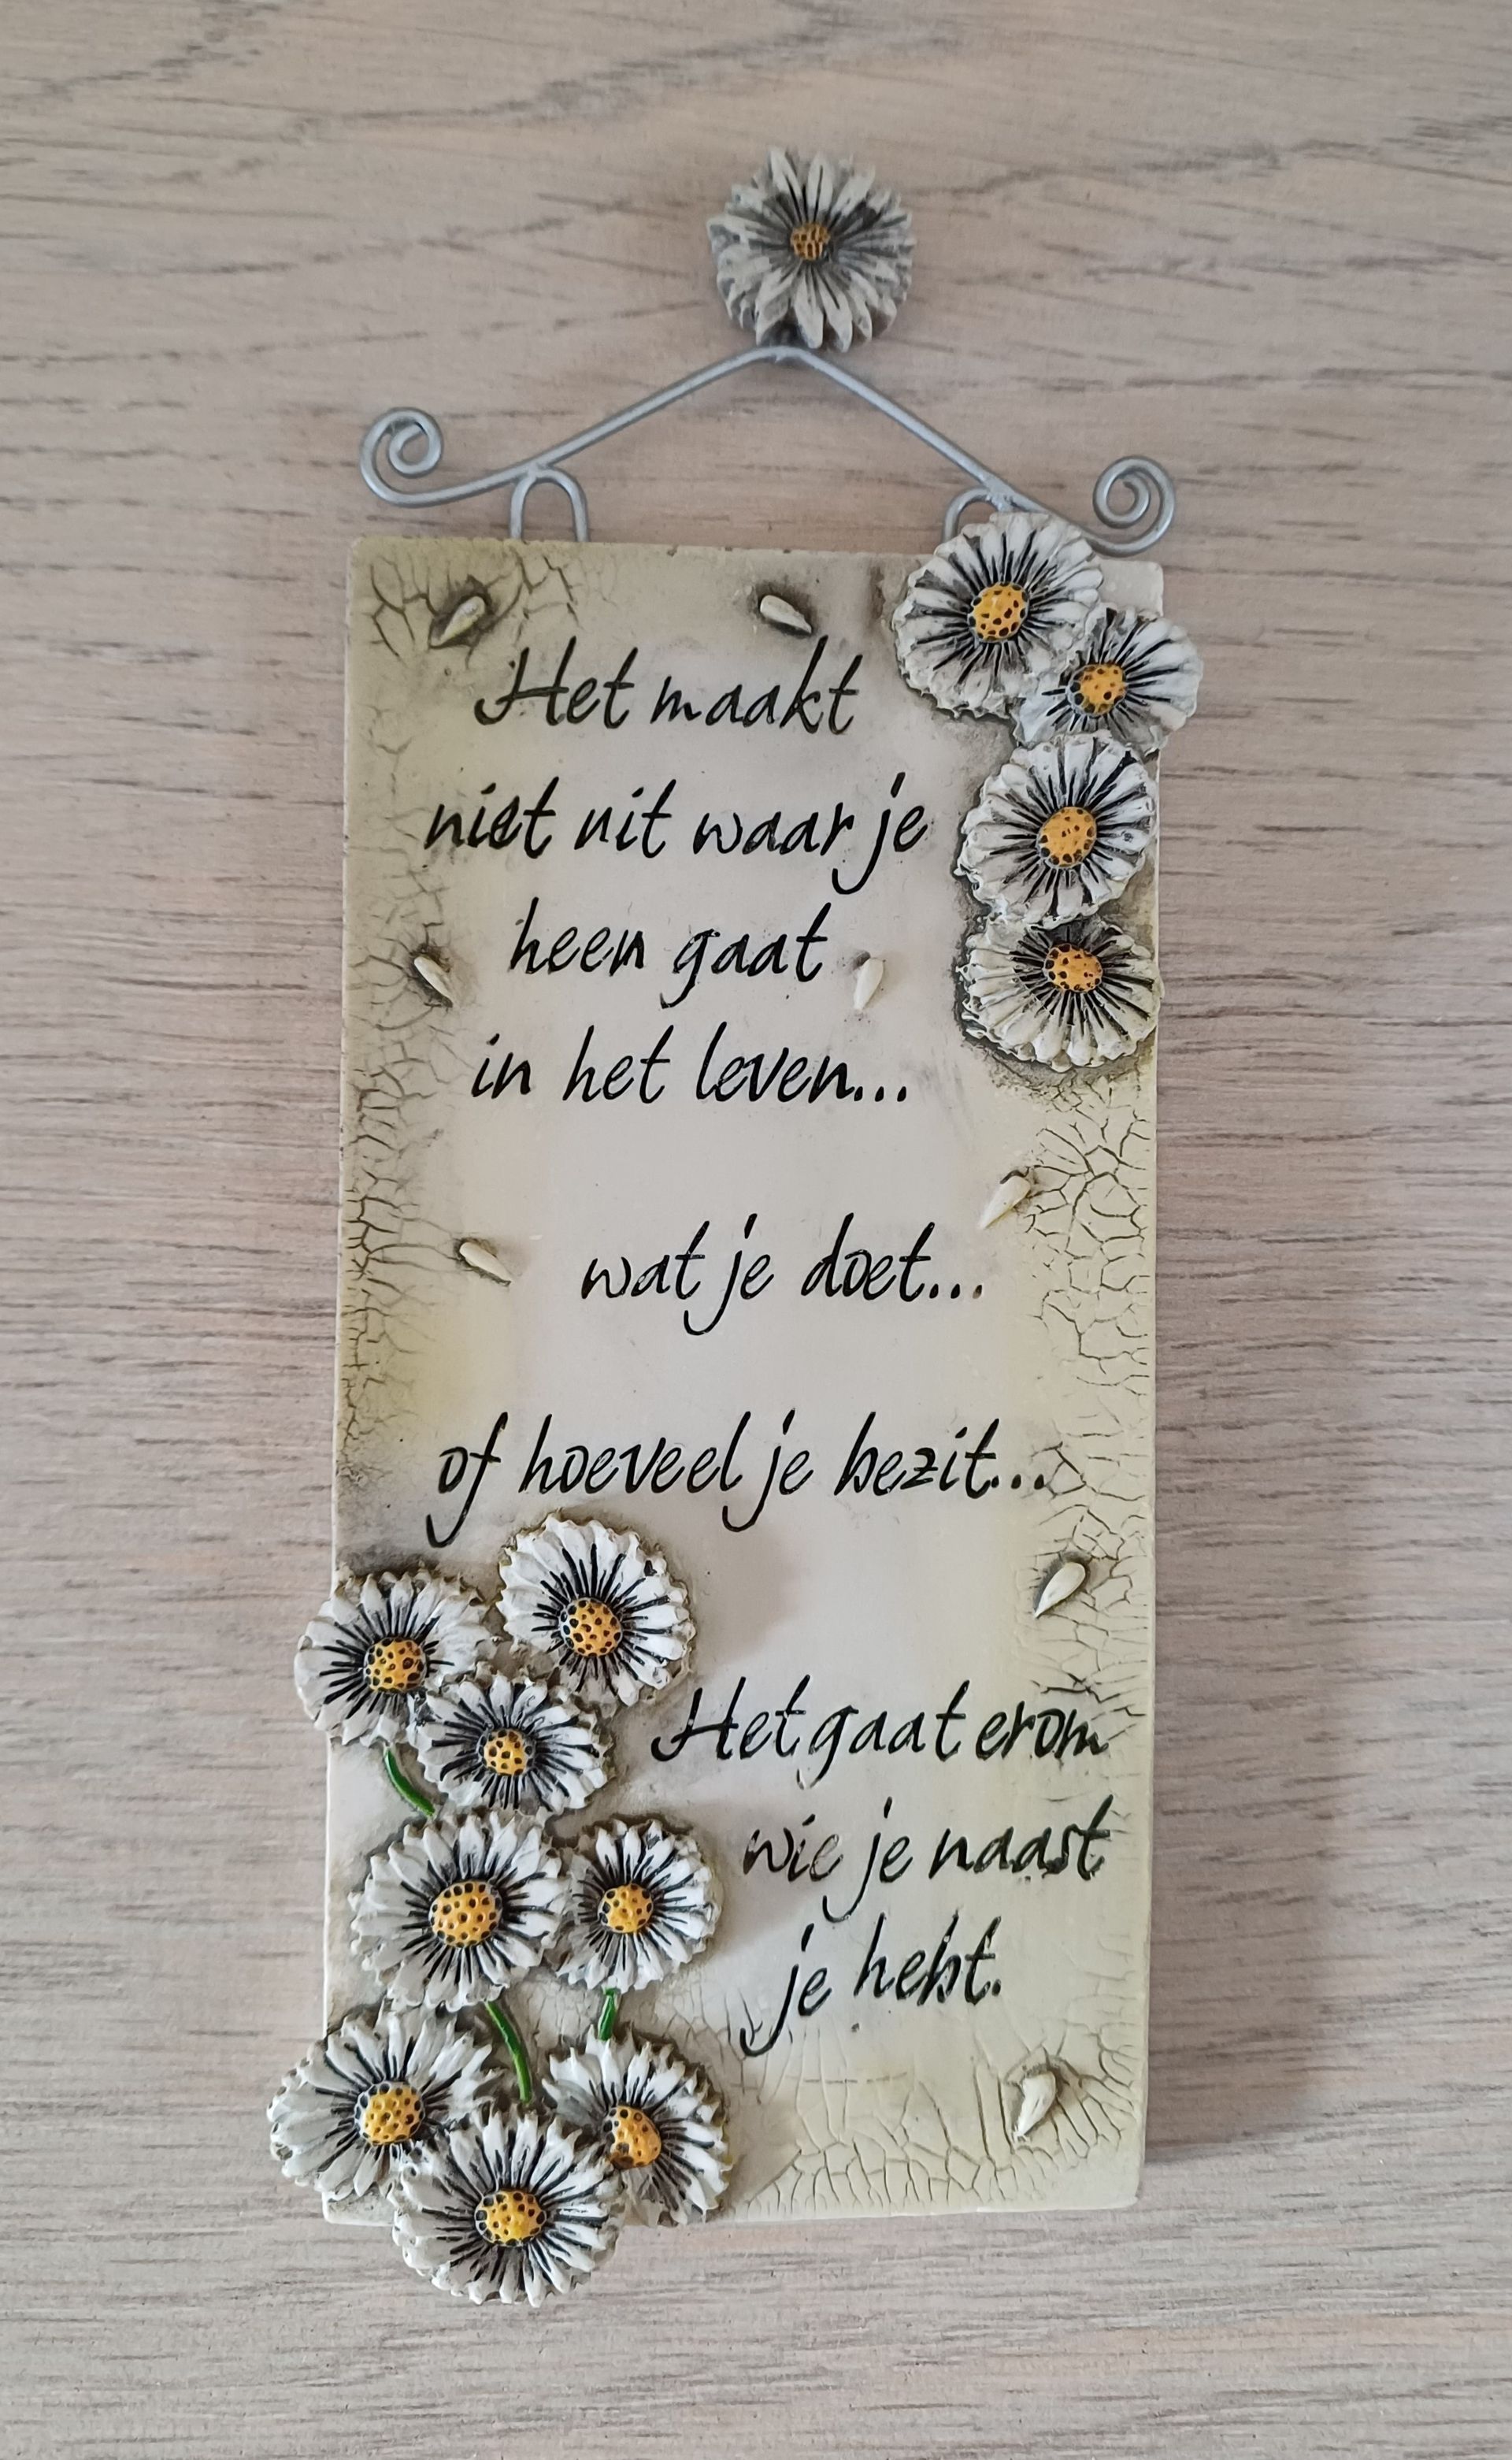 Het maakt
niet uit waar je
heen gaat
in het leven...
wat je doet...
of hoeveel je bezit...
Het gaat erom
wie je naast
je hebt.